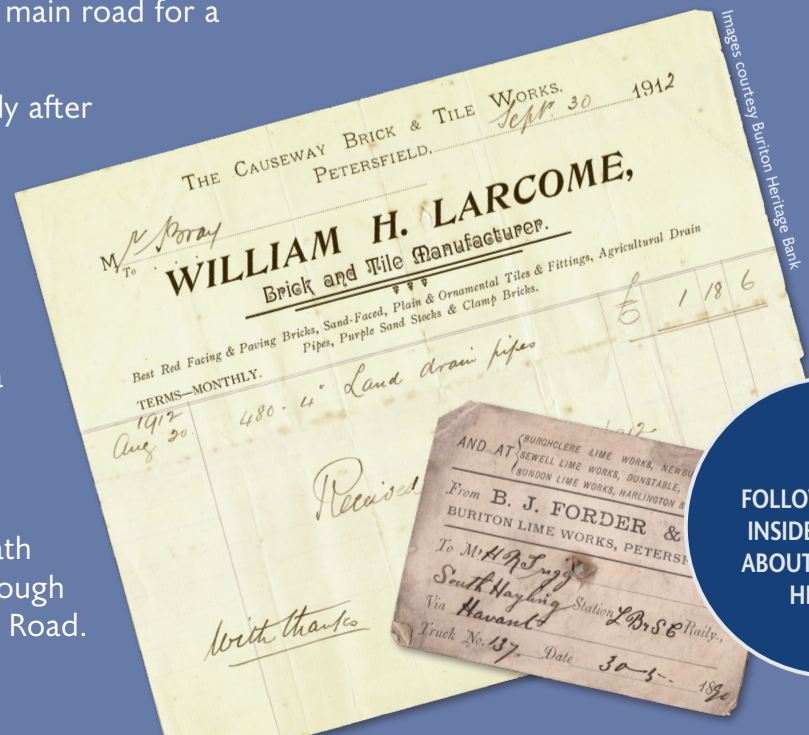 main road for a
ly after
ath
ough
Road.
Images courtesy Buriton Heritage Bank
THE CAUSEWAY BRICK & TILE WORKS,
PETERSFIELD. Sept. 30 1912
Mr Bray
To
WILLIAM H. LARCOME,
Brick and Tile Manufacturer.
Best Red Facing & Paving Bricks, Sand-Faced, Plain & Ornamental Tiles & Fittings, Agricultural Drain
Pipes, Purple Sand Stocks & Clamp Bricks.
TERMS—MONTHLY.
£ 1 18 6
1912
Aug 20. 480. 4" Land drain pipes
Received
With thanks
AND AT BURGHCLERE LIME WORKS, NEWBU
SEWELL LIME WORKS, DUNSTABLE,
SUNDON LIME WORKS, HARLINGTON &
From B. J. FORDER &
BURITON LIME WORKS, PETERSF
To Mr H
South Hayling Station L B & S C Raily.,
Via Havant
Truck No. 137. Date 30-5- 1890
FOLLOW
INSIDE
ABOUT
H